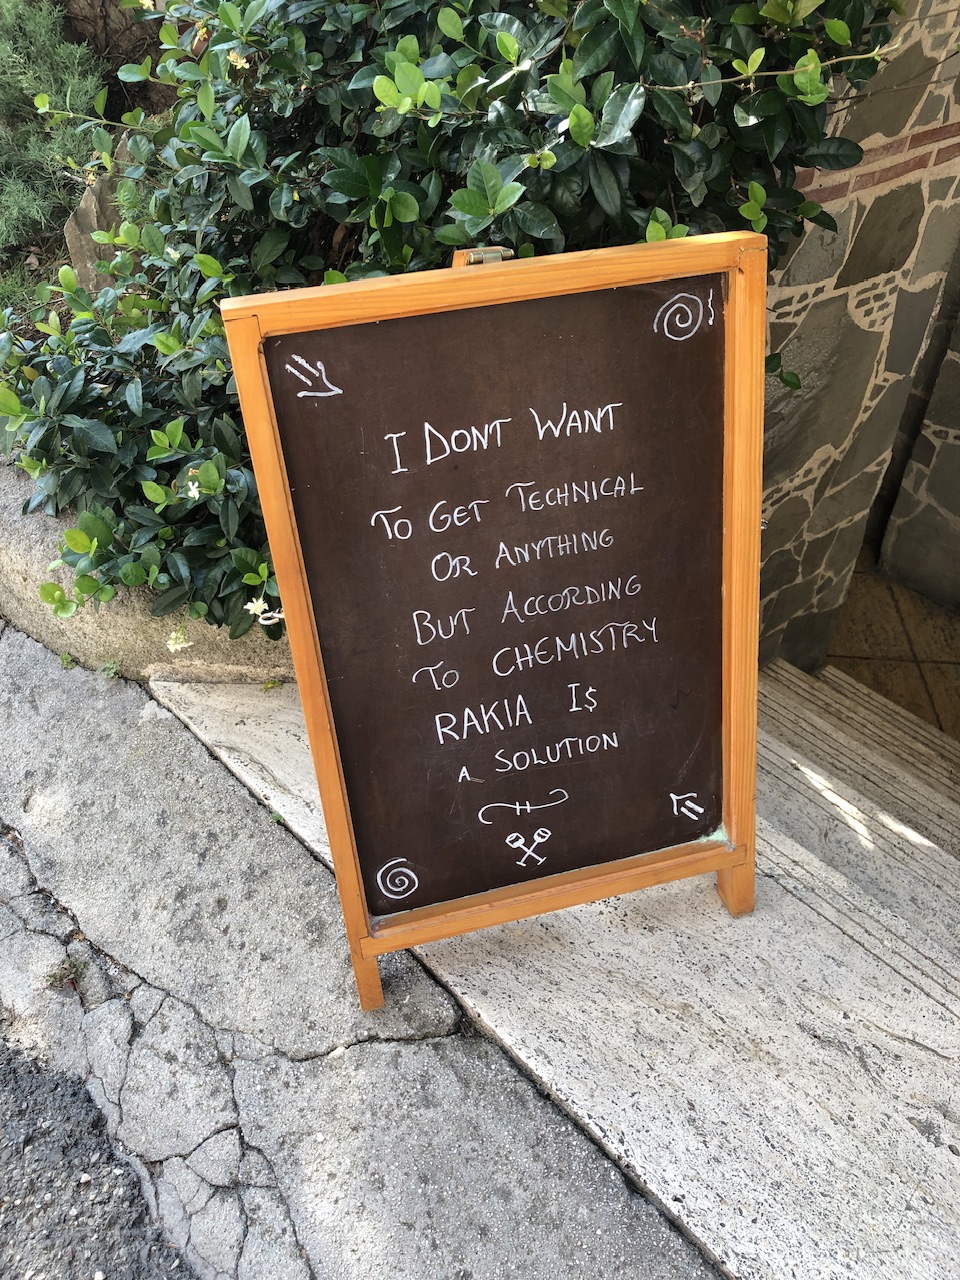 I DONT WANT
TO GET TECHNICAL
OR ANYTHING
BUT ACCORDING
TO CHEMISTRY
RAKIA I$
A SOLUTION